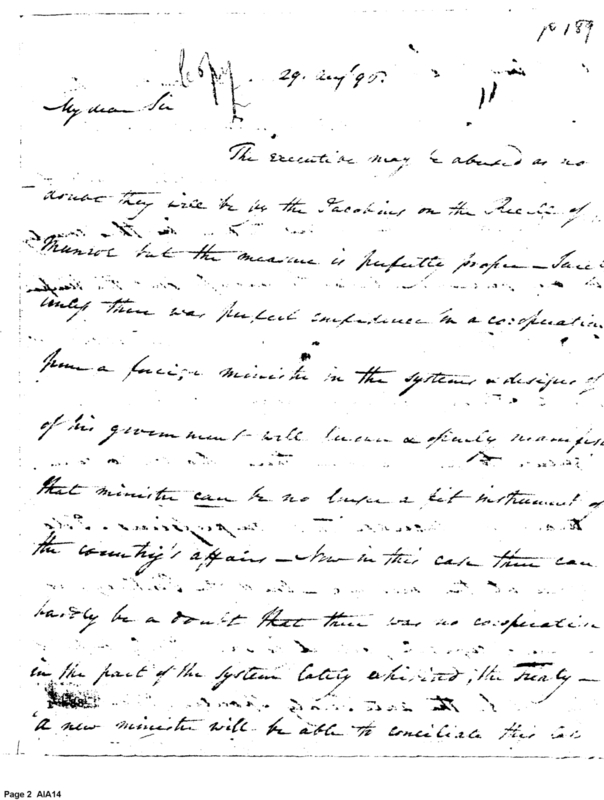 p 189
Copy 29. Augt 96.
My dear Sir
The executive may be abused as no
doubt they will be by the Jacobins on the Recall of
Munroe but the measure is perfectly proper –
there was perfect confidence in a cooperation
from a foreign minister in the systems & designs of
of his government
that minister can be no longer a fit instrument of
the country's affairs – Now in this case there can
hardly be a doubt that there was no cooperation
in the part of the system lately the treaty –
a new minister will be able to conciliate this
Page 2 AIA14